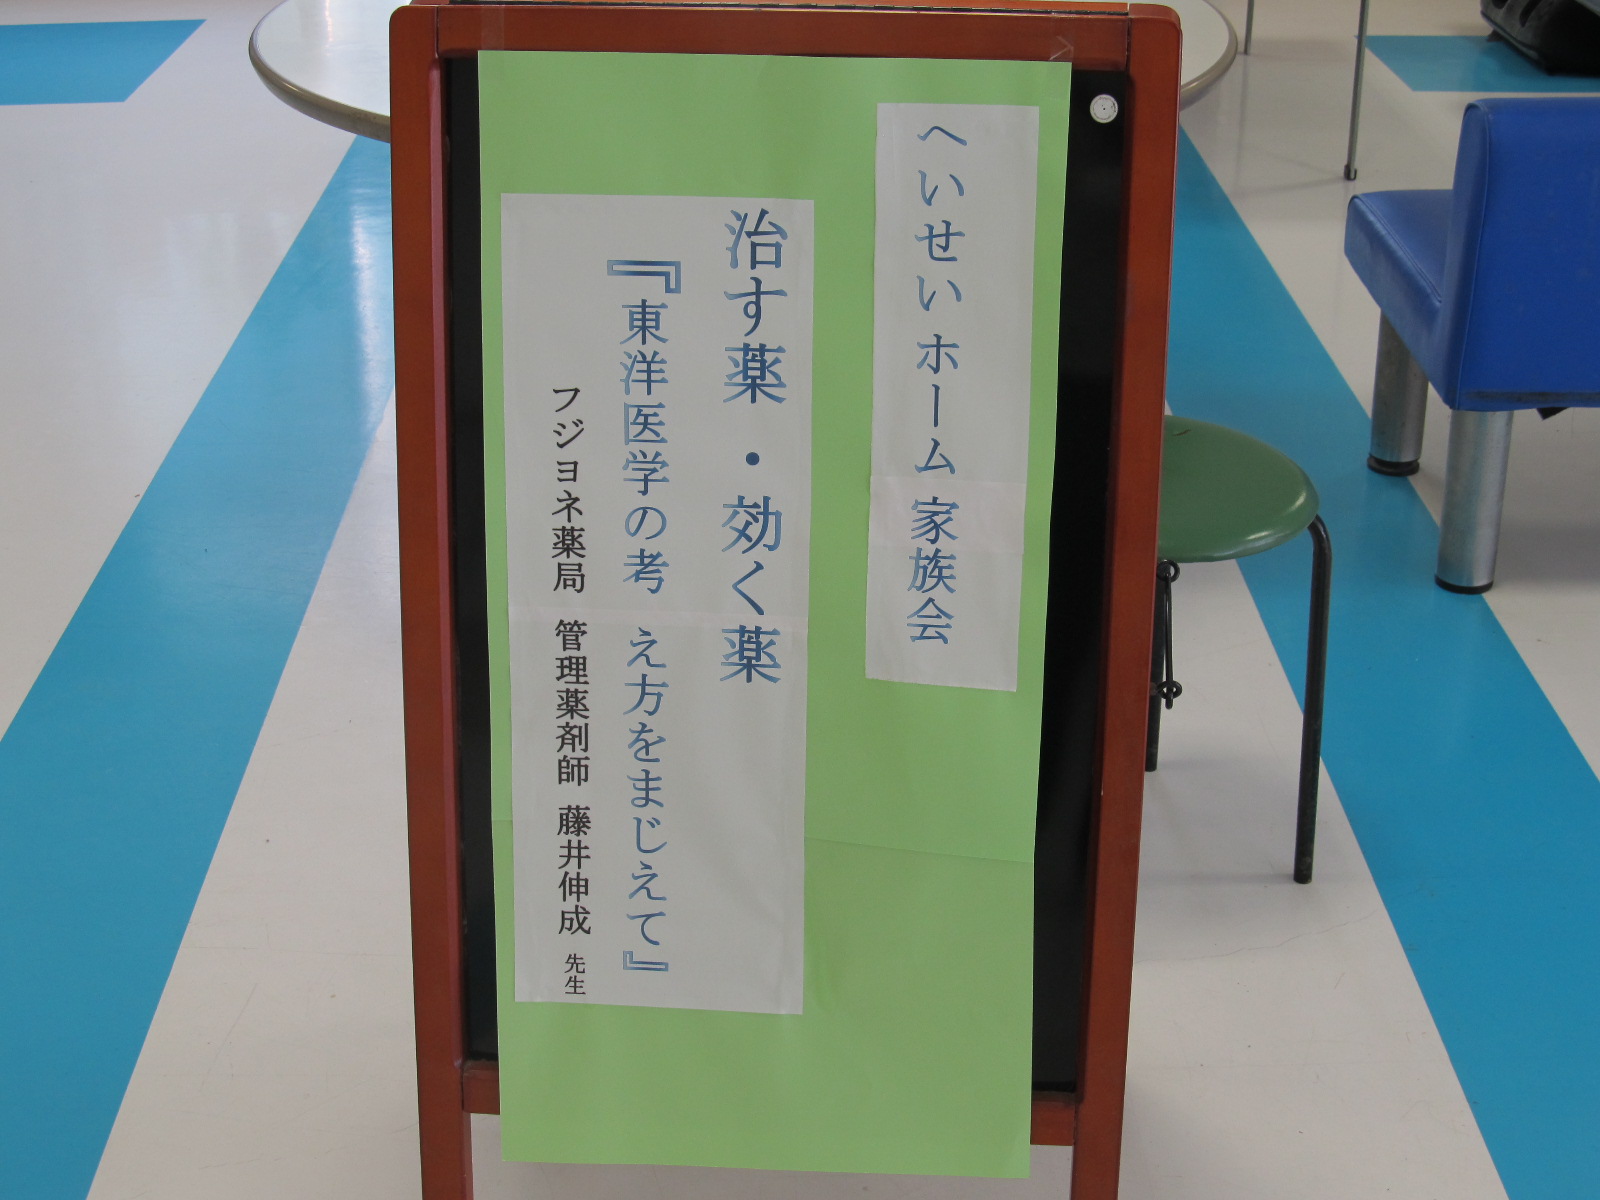 へいせいホーム家族会
治す薬・効く薬
『東洋医学の考え方をまじえて』
フジヨネ薬局 管理薬剤師 藤井伸成 先生